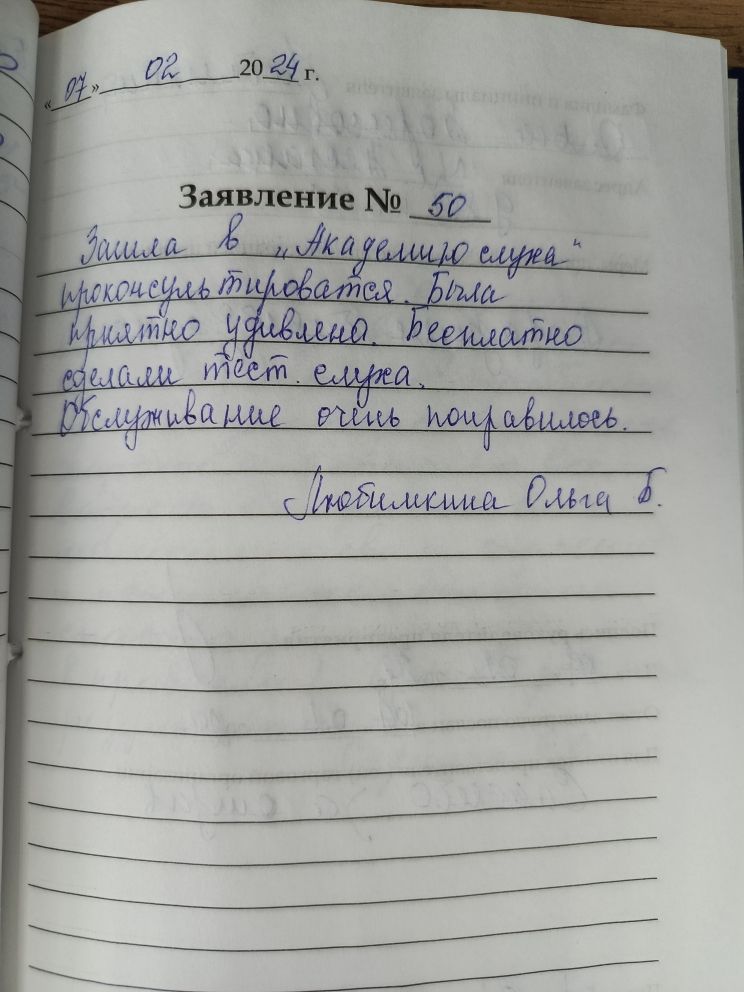 «07» 02 2024 г.
Заявление № 50
Зашла в „Академию слуха“
проконсультироватся. Была
приятно удивлена. Бесплатно
сделали тест слуха.
Обслуживание очень понравилось.
Любимкина Ольга Б.